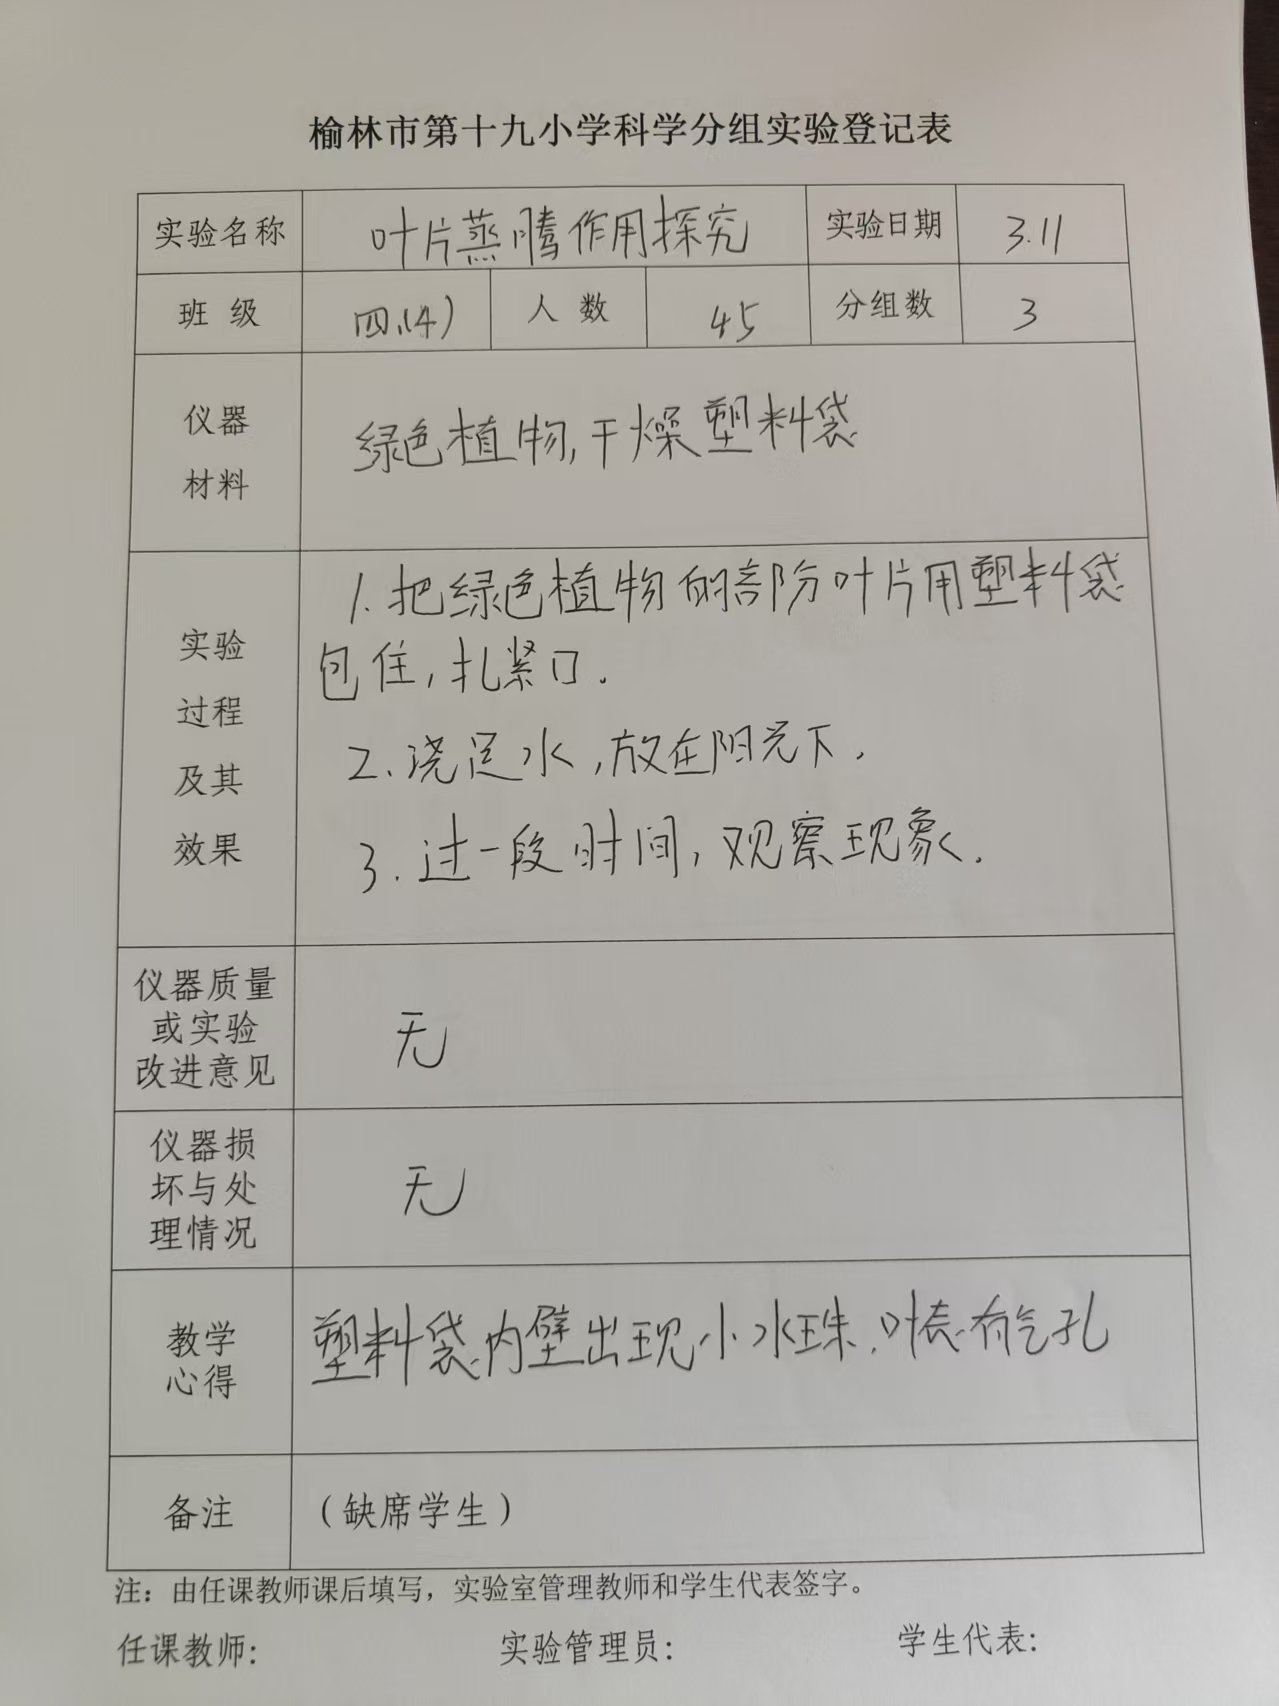 榆林市第十九小学科学分组实验登记表
实验名称 叶片蒸腾作用探究 实验日期 3.11
班级 四(4) 人数 45 分组数 3
仪器
材料
绿色植物,干燥塑料袋
实验
过程
及其
效果
1.把绿色植物的部分叶片用塑料袋
包住,扎紧口.
2.浇足水,放在阳光下.
3.过一段时间,观察现象.
仪器质量
或实验
改进意见
无
仪器损
坏与处
理情况
无
教学
心得
塑料袋内壁出现小水珠,叶表有气孔
备注 (缺席学生)
注：由任课教师课后填写，实验室管理教师和学生代表签字。
任课教师: 实验管理员: 学生代表: